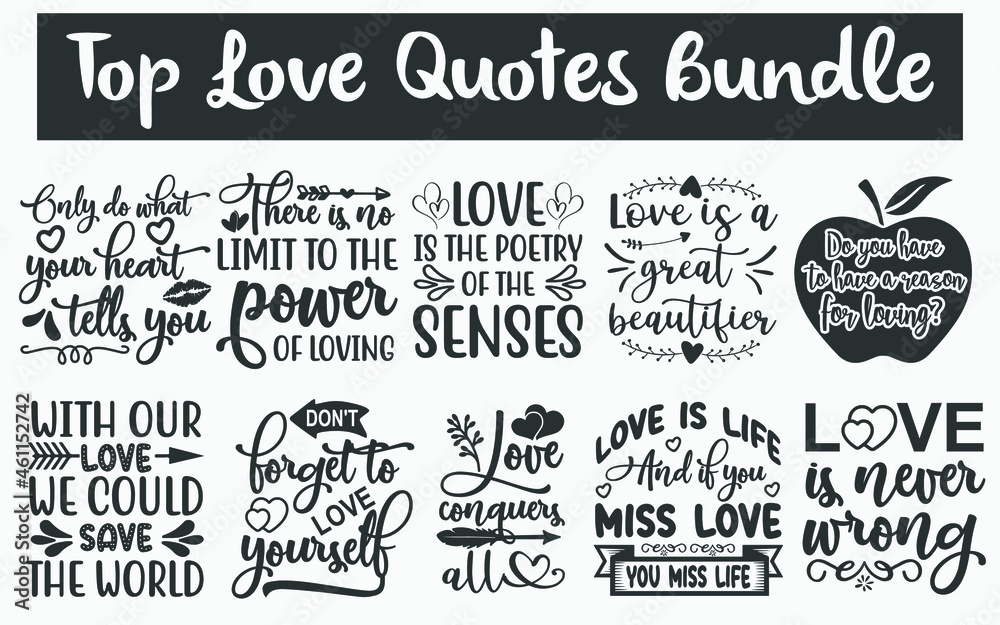 Top Love Quotes Bundle
Only do what
your heart
tells you
There is no
LIMIT TO THE
power
OF LOVING
LOVE
IS THE POETRY
OF THE
SENSES
Love is a
great
beautifier
Do you have
to have a reason
for loving?
WITH OUR
LOVE
WE COULD
SAVE
THE WORLD
DON'T
forget to
LOVE
yourself
Love
conquers
all
LOVE IS LIFE
And if you
MISS LOVE
YOU MISS LIFE
LOVE
is never
wrong
Adobe Stock | #461152742